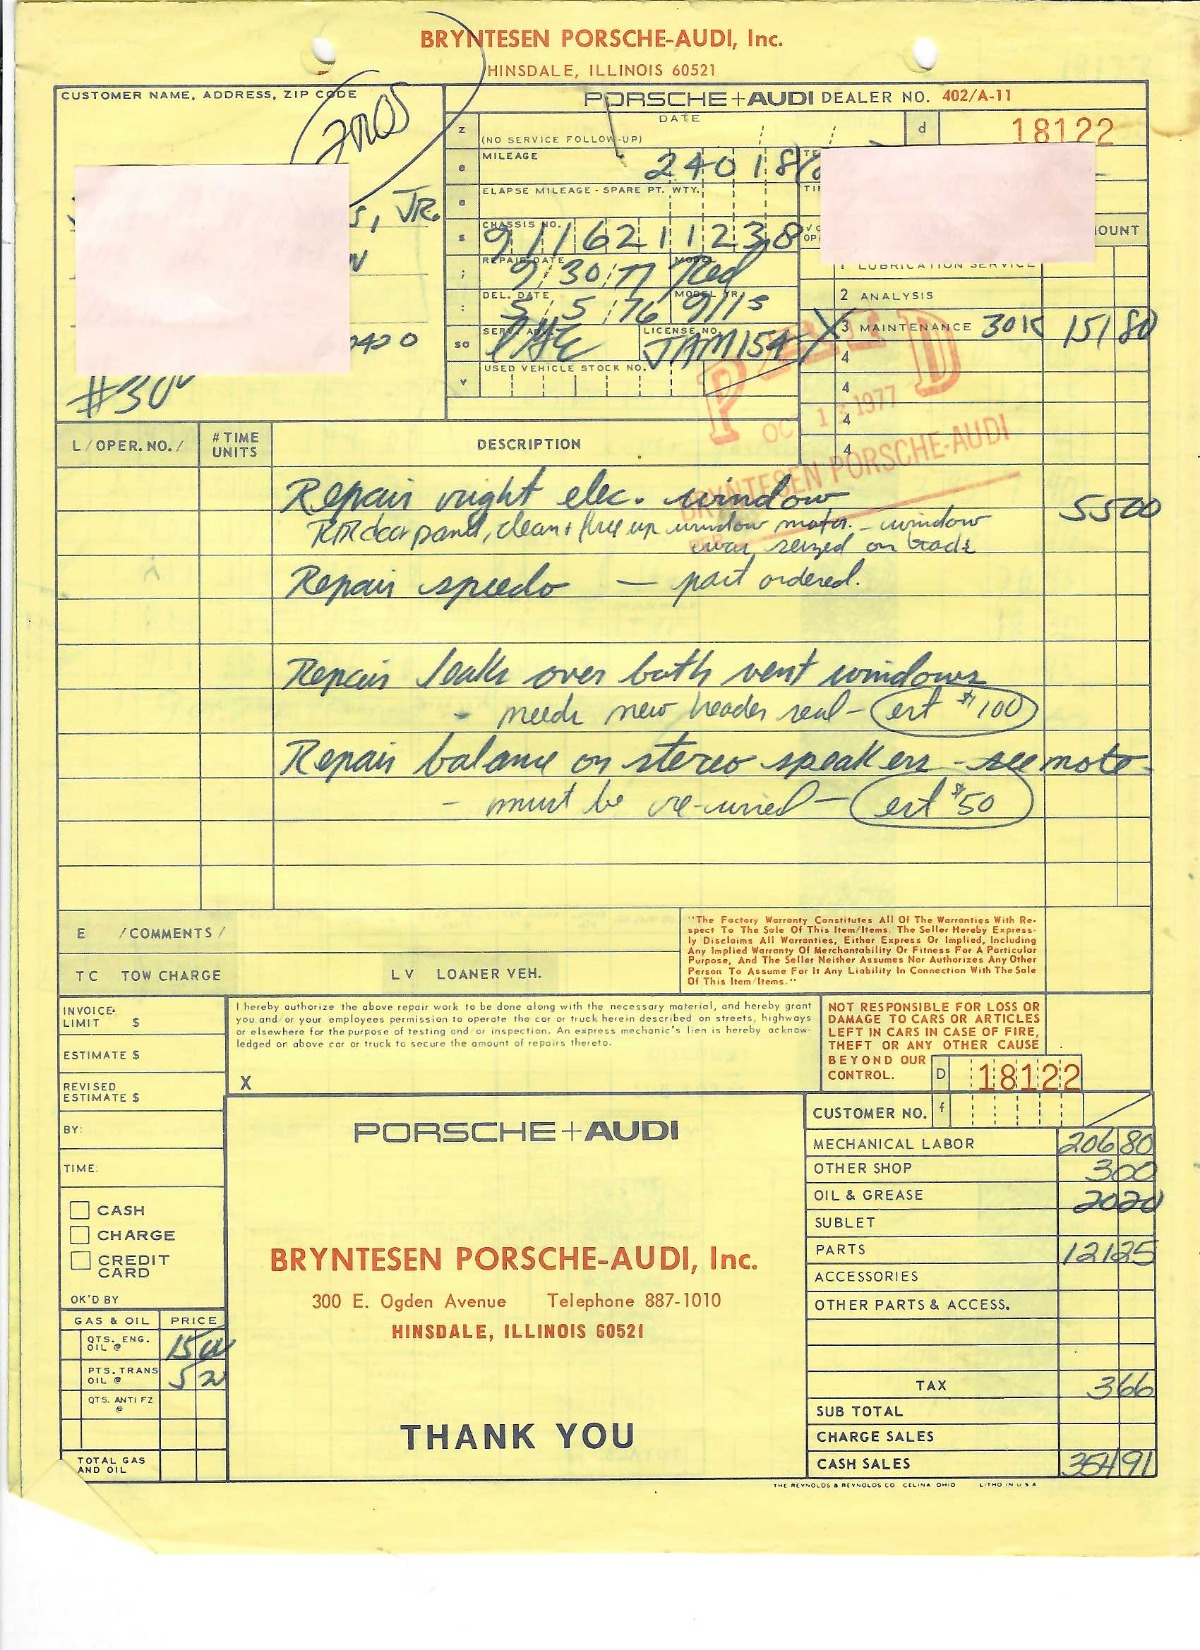 BRYNTESEN PORSCHE-AUDI, Inc.
HINSDALE, ILLINOIS 60521
CUSTOMER NAME, ADDRESS, ZIP CODE
PORSCHE+AUDI DEALER NO. 402/A-11
DATE
(NO SERVICE FOLLOW-UP)
z
d 18122
e MILEAGE 24018
e ELAPSE MILEAGE - SPARE PT. WTY.
s CHASSIS NO. 9116211238
OUNT
, JR.
; REPAIR DATE 9/30/77 MODEL Red
1 LUBRICATION SERVICE
: DEL. DATE 5/5/76 MODEL YR. 911S
2 ANALYSIS
sa LICENSE NO. JAM154
X 3 MAINTENANCE 30K 151 80
420
v USED VEHICLE STOCK NO.
4
4
4
4
PAID
OCT 12 1977
BRYNTESEN PORSCHE-AUDI
L/OPER. NO./ # TIME UNITS DESCRIPTION
Repair right elec. window 55 00
R&R door panel, clean + free up window motor - window
was seized on track
Repair speedo — part ordered.
Repair leaks over both vent windows
- needs new header seal - est $100
Repair balance on stereo speakers - see note
- must be re-wired - est $50
E /COMMENTS/
TC TOW CHARGE LV LOANER VEH.
"The Factory Warranty Constitutes All Of The Warranties With Re-
spect To The Sale Of This Item/Items. The Seller Hereby Express-
ly Disclaims All Warranties, Either Express Or Implied, Including
Any Implied Warranty Of Merchantability Or Fitness For A Particular
Purpose, And The Seller Neither Assumes Nor Authorizes Any Other
Person To Assume For It Any Liability In Connection With The Sale
Of This Item/Items."
INVOICE LIMIT $
ESTIMATE $
REVISED ESTIMATE $
BY:
TIME:
CASH
CHARGE
CREDIT CARD
OK'D BY
I hereby authorize the above repair work to be done along with the necessary material, and hereby grant
you and/or your employees permission to operate the car or truck herein described on streets, highways
or elsewhere for the purpose of testing and/or inspection. An express mechanic's lien is hereby acknow-
ledged on above car or truck to secure the amount of repairs thereto.
X
NOT RESPONSIBLE FOR LOSS OR
DAMAGE TO CARS OR ARTICLES
LEFT IN CARS IN CASE OF FIRE,
THEFT OR ANY OTHER CAUSE
BEYOND OUR
CONTROL.
D 18122
CUSTOMER NO. f
GAS & OIL PRICE
QTS. ENG. OIL @ 15 00
PTS. TRANS OIL @ 5 20
QTS. ANTI FZ @
TOTAL GAS AND OIL
PORSCHE+AUDI
BRYNTESEN PORSCHE-AUDI, Inc.
300 E. Ogden Avenue Telephone 887-1010
HINSDALE, ILLINOIS 60521
THANK YOU
MECHANICAL LABOR 206 80
OTHER SHOP 3 00
OIL & GREASE 20 20
SUBLET
PARTS 121 25
ACCESSORIES
OTHER PARTS & ACCESS.
TAX 3 66
SUB TOTAL
CHARGE SALES
CASH SALES 354 91
THE REYNOLDS & REYNOLDS CO. CELINA, OHIO LITHO IN U.S.A.